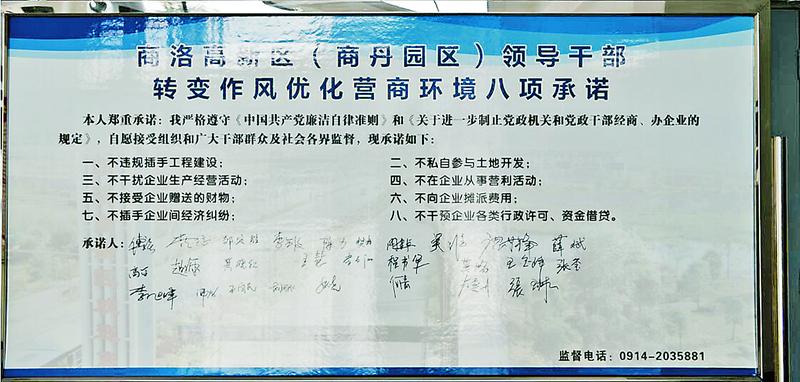 商洛高新区（商丹园区）领导干部
转变作风优化营商环境八项承诺
本人郑重承诺：我严格遵守《中国共产党廉洁自律准则》和《关于进一步制止党政机关和党政干部经商、办企业的
规定》，自愿接受组织和广大干部群众及社会各界监督，现承诺如下：
一、不违规插手工程建设； 二、不私自参与土地开发；
三、不干扰企业生产经营活动； 四、不在企业从事营利活动；
五、不接受企业赠送的财物； 六、不向企业摊派费用；
七、不插手企业间经济纠纷； 八、不干预企业各类行政许可、资金借贷。
承诺人：
监督电话：0914-2035881